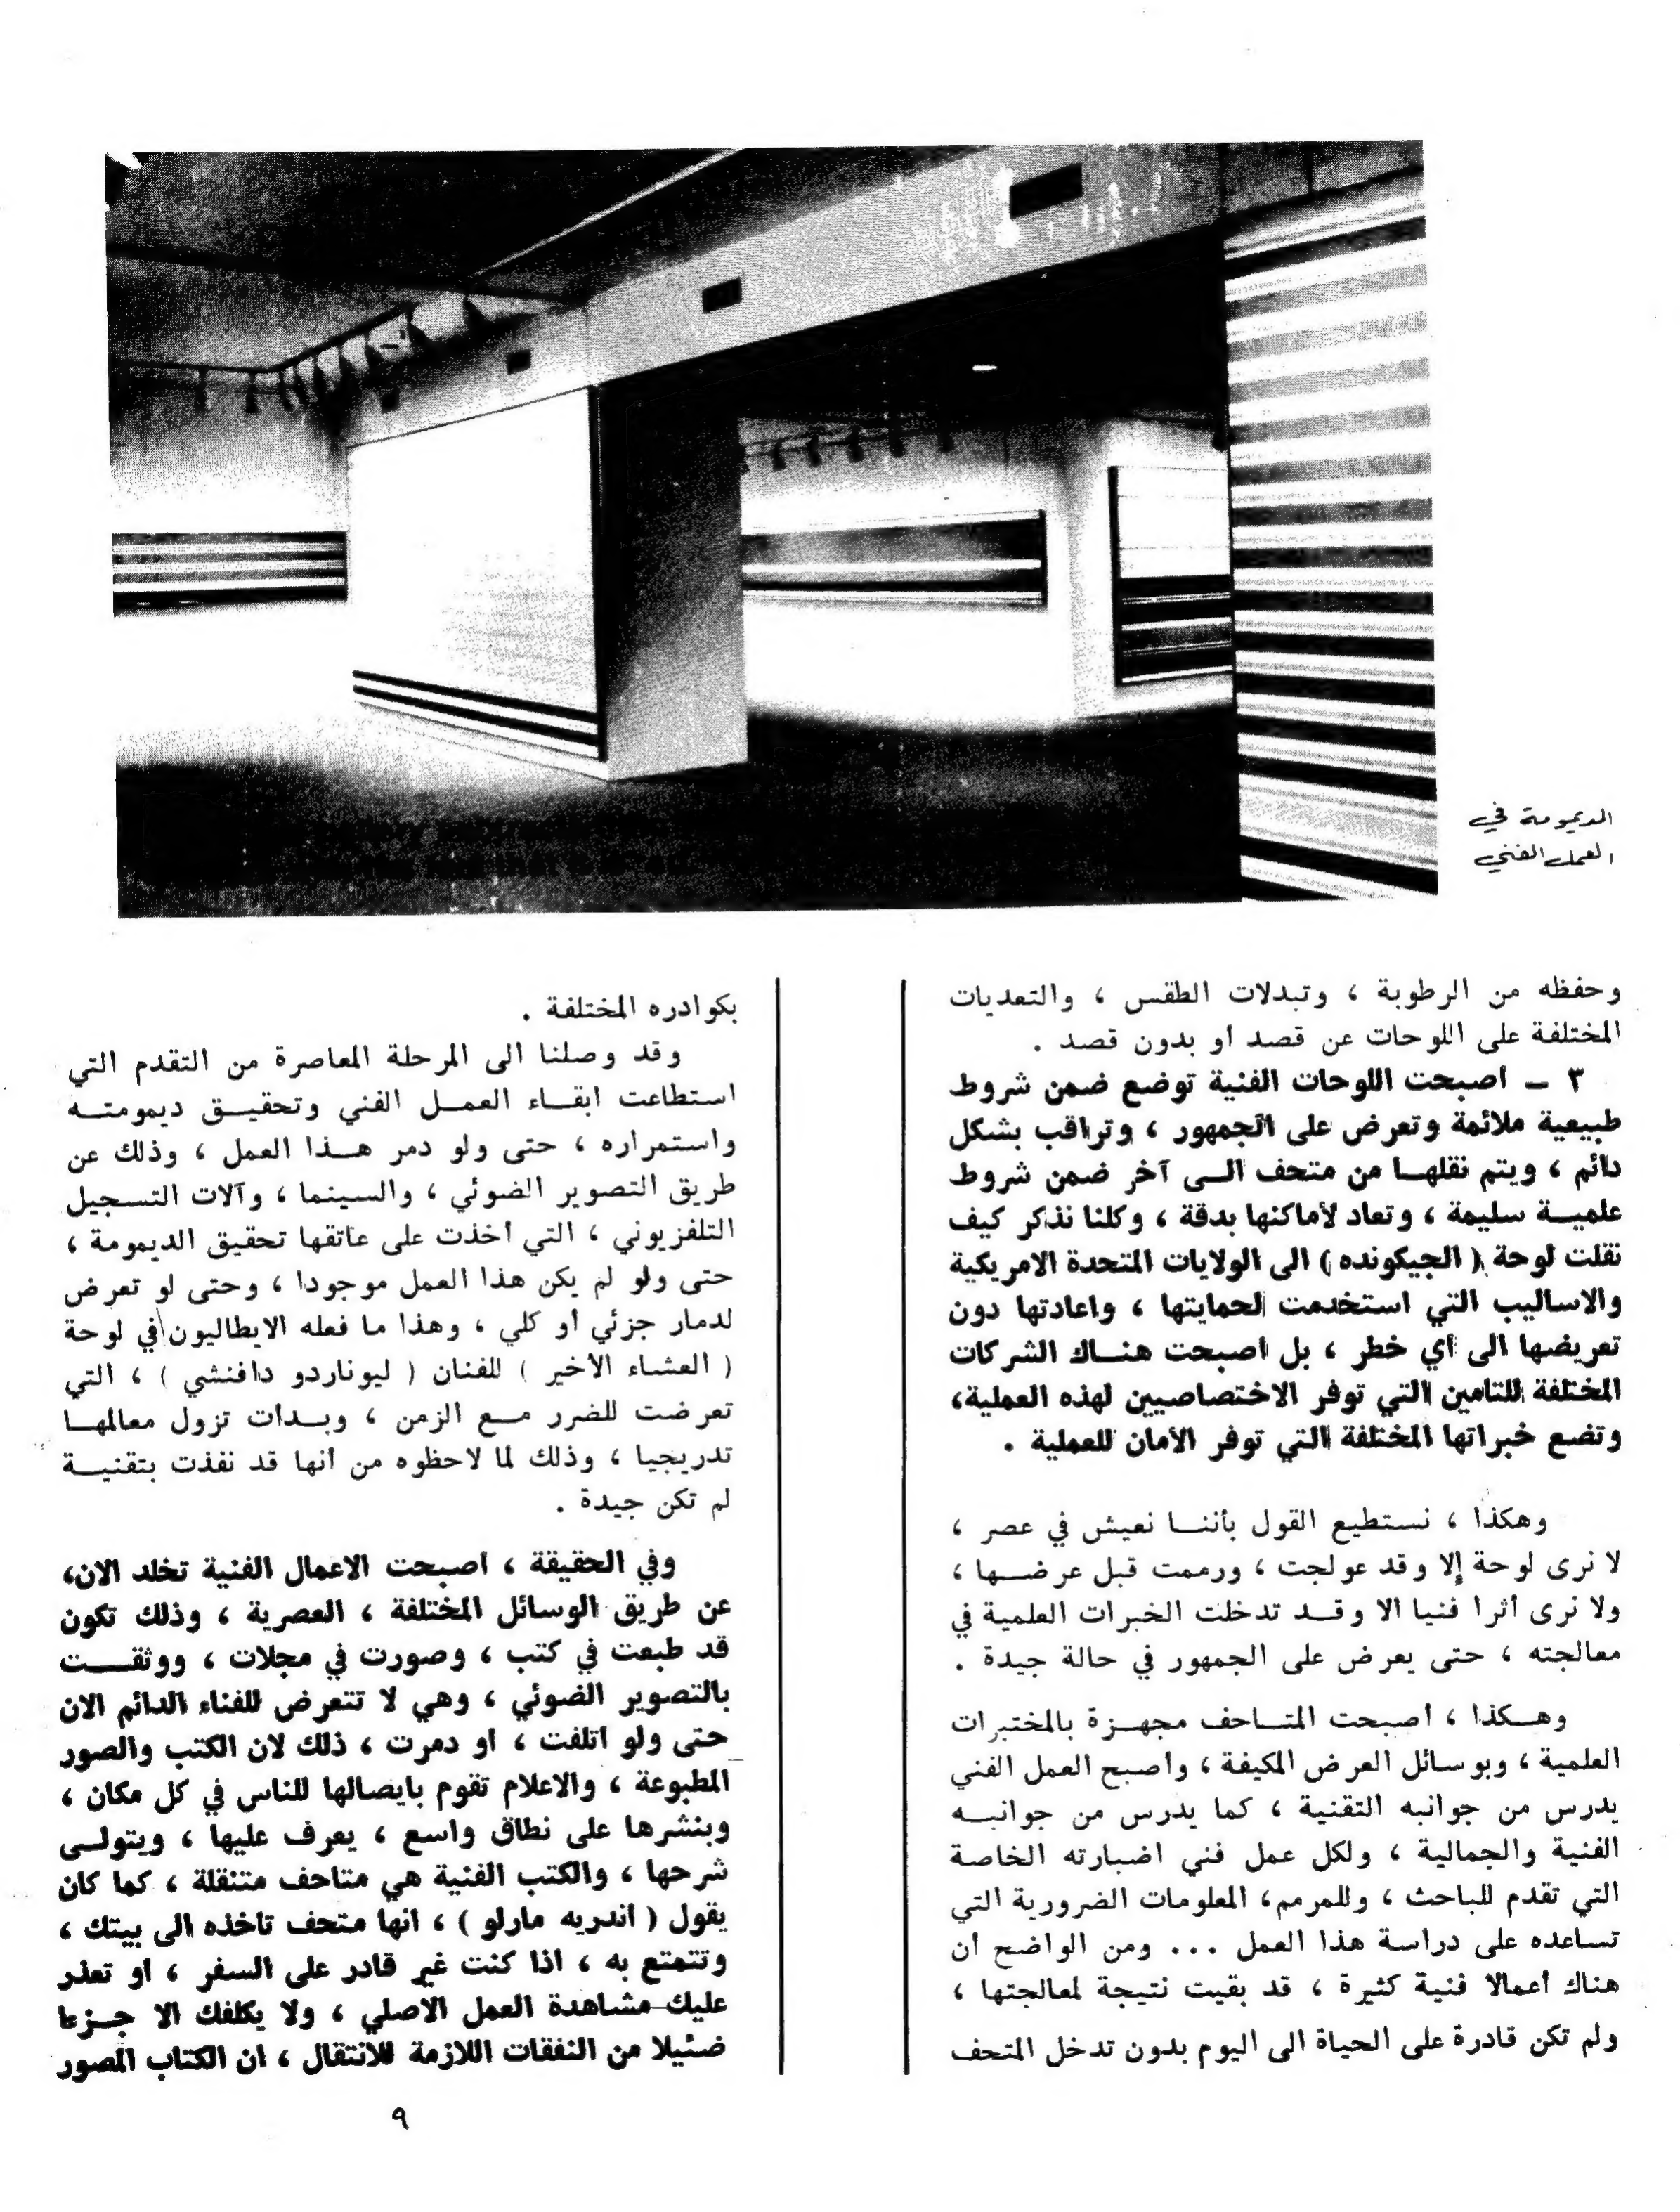 الديمومة في
العمل الفني
وحفظه من الرطوبة ، وتبدلات الطقس ، والتعديات
المختلفة على اللوحات عن قصد أو بدون قصد .
٣ ـ أصبحت اللوحات الفنية توضع ضمن شروط
طبيعية ملائمة وتعرض على الجمهور ، وتراقب بشكل
دائم ، ويتم نقلهـا من متحف الـى آخر ضمن شروط
علميـة سليمة ، وتعاد لأماكنها بدقة ، وكلنا نذكر كيف
نقلت لوحة ( الجيكونده ) الى الولايات المتحدة الامريكية
والاساليب التي استخدمت لحمايتها ، واعادتها دون
تعريضها الى أي خطر ، بل أصبحت هنـاك الشركات
المختلفة للتأمين التي توفر الاختصاصيين لهذه العملية،
وتضع خبراتها المختلفة التي توفر الأمان للعملية .
وهكذا ، نستطيع القول بأننـا نعيش في عصر ،
لا نرى لوحة إلا وقد عولجت ، ورممت قبل عرضـها ،
ولا نرى أثرا فنيا الا وقـد تدخلت الخبرات العلمية في
معالجته ، حتى يعرض على الجمهور في حالة جيدة .
وهـكذا ، أصبحت المتـاحف مجهـزة بالمختبرات
العلمية ، وبوسائل العرض المكيفة ، وأصبح العمل الفني
يدرس من جوانبه التقنية ، كما يدرس من جوانبـه
الفنية والجمالية ، ولكل عمل فني اضبارته الخاصة
التي تقدم للباحث ، وللمرمم، المعلومات الضرورية التي
تساعده على دراسة هذا العمل ... ومن الواضح أن
هناك أعمالا فنية كثيرة ، قد بقيت نتيجة لمعالجتها ،
ولم تكن قادرة على الحياة الى اليوم بدون تدخل المتحف
بكوادره المختلفة .
وقد وصلنا الى المرحلة المعاصرة من التقدم التي
استطاعت ابقـاء العمـل الفني وتحقيـق ديمومتـه
واستمراره ، حتى ولو دمر هـذا العمل ، وذلك عن
طريق التصوير الضوئي ، والسينما ، وآلات التسجيل
التلفزيوني ، التي أخذت على عاتقها تحقيق الديمومة ،
حتى ولو لم يكن هذا العمل موجودا ، وحتى لو تعرض
لدمار جزئي أو كلي ، وهذا ما فعله الايطاليون في لوحة
( العشاء الأخير ) للفنان ( ليوناردو دافنشي ) ، التي
تعرضت للضرر مـع الزمن ، وبـدأت تزول معالمهـا
تدريجيا ، وذلك لما لاحظوه من أنها قد نفذت بتقنيـة
لم تكن جيدة .
وفي الحقيقة ، أصبحت الاعمال الفنية تخلد الان،
عن طريق الوسائل المختلفة ، العصرية ، وذلك تكون
قد طبعت في كتب ، وصورت في مجلات ، ووثقـت
بالتصوير الضوئي ، وهي لا تتعرض للفناء الدائم الان
حتى ولو أتلفت ، أو دمرت ، ذلك لان الكتب والصور
المطبوعة ، والاعلام تقوم بايصالها للناس في كل مكان ،
وبنشرها على نطاق واسع ، يعرف عليها ، ويتولـى
شرحها ، والكتب الفنية هي متاحف متنقلة ، كما كان
يقول ( أندريه مارلو ) ، انها متحف تأخذه الى بيتك ،
وتتمتع به ، اذا كنت غير قادر على السفر ، أو تعذر
عليك مشاهدة العمل الاصلي ، ولا يكلفك الا جـزءا
ضئيلا من النفقات اللازمة للانتقال ، ان الكتاب المصور
٩